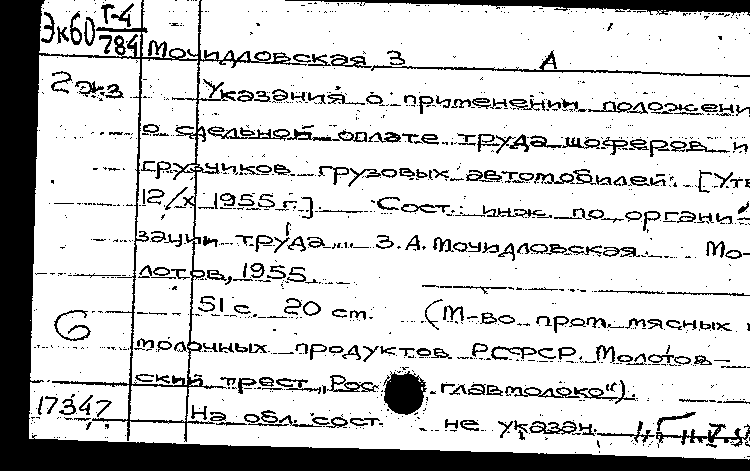 Эк60 Т-4
784
Мочидловская, З
А
2 экз
Указания о применении положени
о сдельной оплате труда шоферов и
грузчиков грузовых автомобилей. [Утв
12/X 1955 г.] Сост. инж. по органи-
зации труда ... З.А. Мочидловская. Мо-
лотов, 1955.
51 с. 20 см. (М-во пром. мясных
6
молочных продуктов РСФСР. Молотов-
ский трест „Рос главмолоко“).
17347
На обл. сост. не указан.